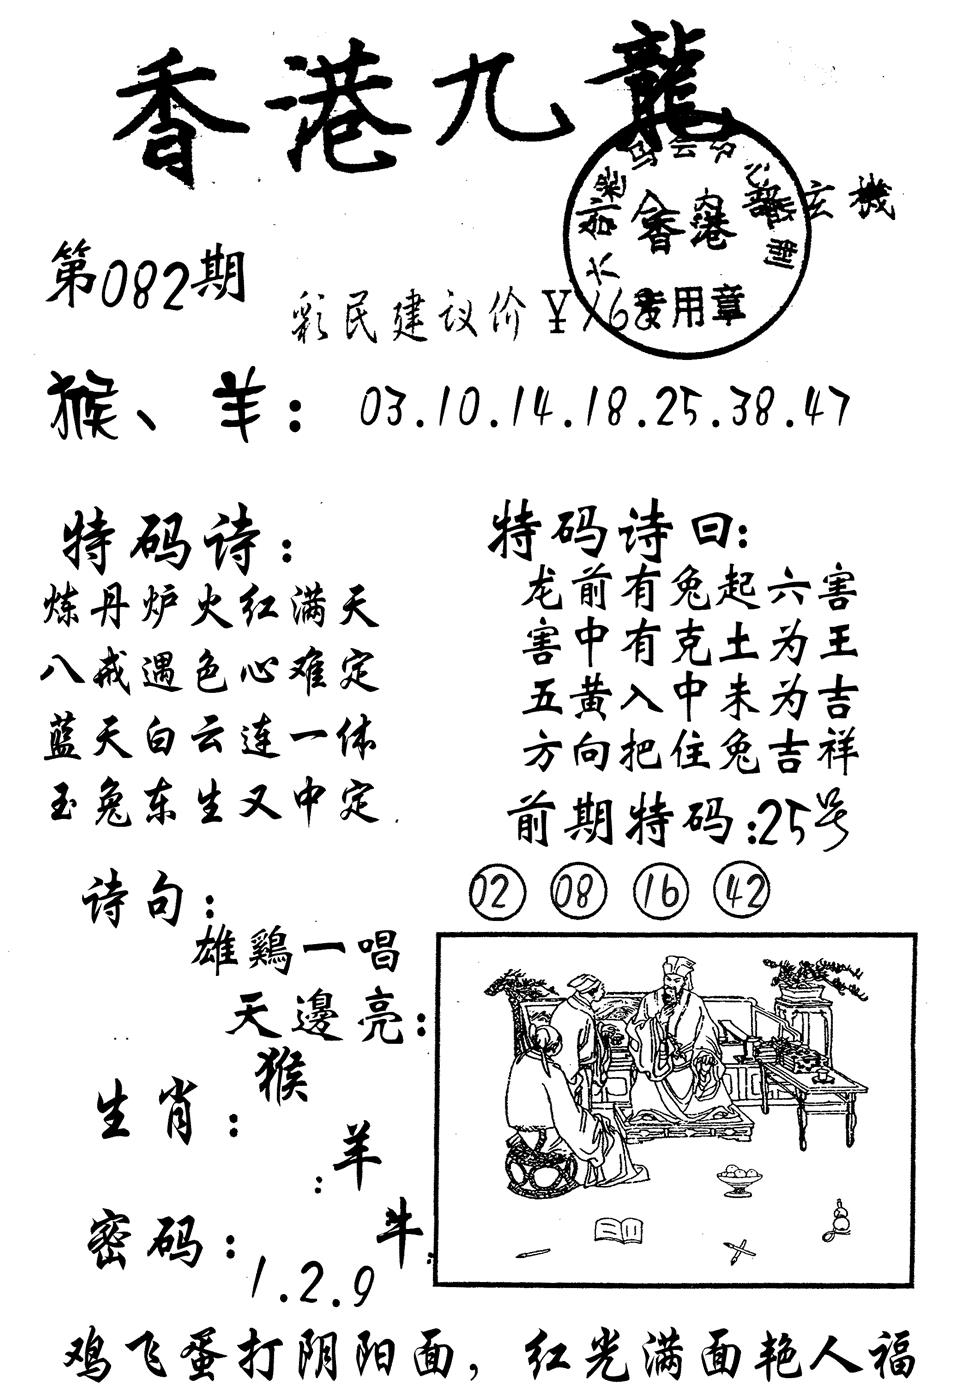 香港九龍
玄機
香港
专用章
第082期
彩民建议价¥168
猴、羊：03.10.14.18.25.38.47
特码诗：
炼丹炉火红满天
八戒遇色心难定
蓝天白云连一体
玉兔东生又中定
特码诗曰：
龙前有兔起六害
害中有克土为王
五黄入中未为吉
方向把住兔吉祥
前期特码:25号
02 08 16 42
诗句：
雄鷄一唱
天邊亮：
生肖：猴
羊
牛
密码：1.2.9
鸡飞蛋打阴阳面，红光满面艳人福